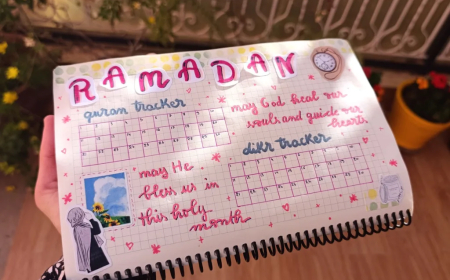 RAMADAN
quran tracker
may God heal our
souls and guide our
hearts
dikr tracker
may He
bless us in
this holy
month